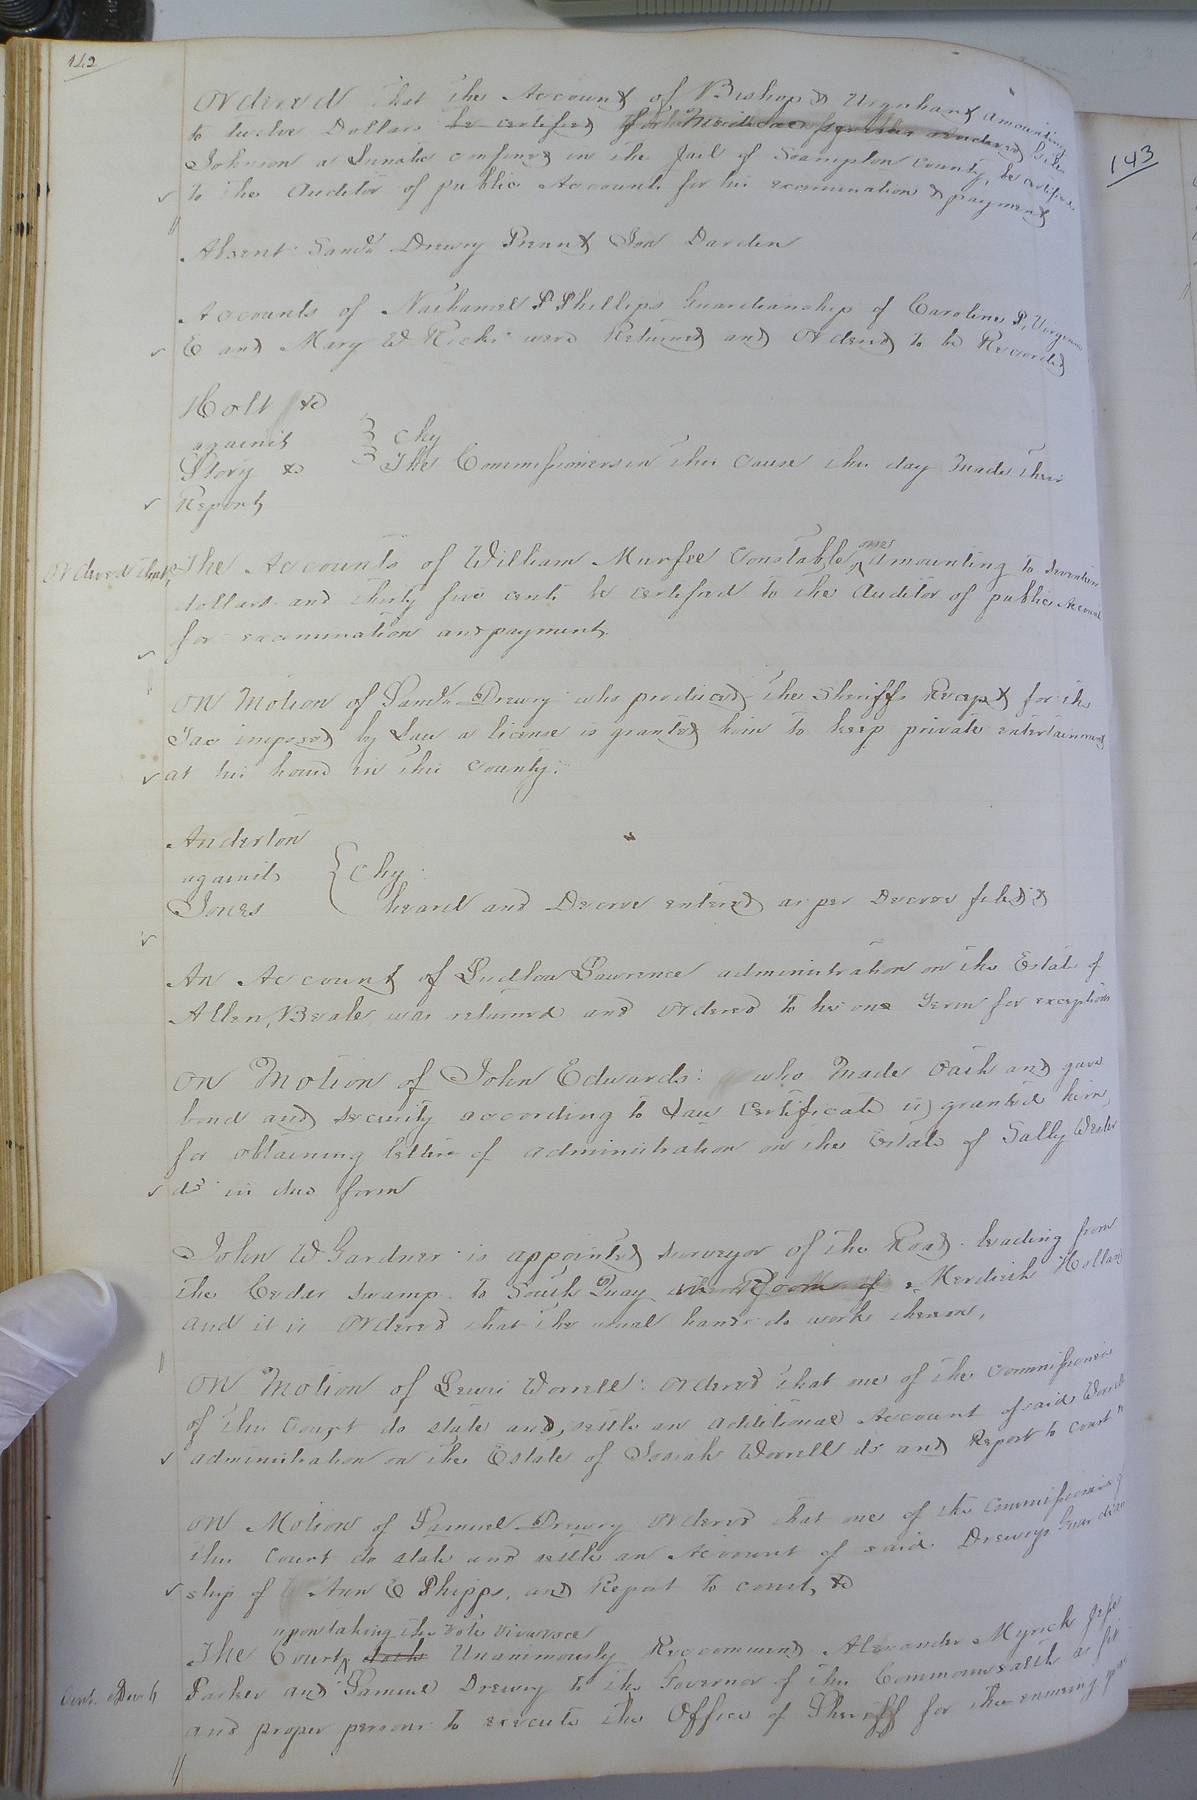 142
Ordered that the Account of Bishop & Urquhart amounting
to twelve Dollars be certified for Medical services rendered
Johnson a Lunatic confined in the Jail of Southampton County, be certified
to the Auditor of public Accounts for his examination & payment
Absent Saml Drewry Prent Jon Darden
Accounts of Nathaniel P Phillips Guardianship of Caroline P, Virginia
E and Mary W Ricks were Returned and Ordered to be Recorded
Holt &c
against } Chy
Story &c } The Commissioners in this Cause this day Made their
Report
Ordered that The Accounts of William Murfee Constable one amounting to seventeen
dollars and thirty five cents be certified to the Auditor of public Accounts
for examination and payment
On Motion of Saml Drewry who produced the Sheriffs Receipt for the
Tax imposed by Law a license is granted him to keep private entertainment
at his house in this County.
Anderton
against { Chy.
Jones heard and Decree entered as per Decree filed
An Account of Ludlon Lawrence administration on the Estate of
Allen Beale was returned and ordered to lie one Term for exceptions
On Motion of John Edwards: who Made Oath and gave
bond and security according to Law Certificate is granted him
for obtaining letters of administration on the Estate of Sally Wester
dd in due form
John W Gardner is appointed surveyor of the Road leading from
the Ceder Swamp to South Quay in Room of Merdich Holland
and it is Ordered that the usual hands do work thereon.
On Motion of Lewis Worrell: ordered that one of the Commissioners
of this Court do state and settle an additional Account of said Worrell
administration on the Estate of Josiah Worrell dd and Report to Court
On Motion of Samuel Drewry Ordered that one of the Commissioners of
this Court do state and settle an Account of said Drewrys Guardian
ship of Ann E Phipps, and Report to court &c
upon taking the Vote Viva voce
The Court Unanimously Reccommend Alexander Myrick Jesse
Parker and Samuel Drewry to the Governor of this Commonwealth as fit
and proper persons to execute the Office of Sheriff for the ensuing year
143